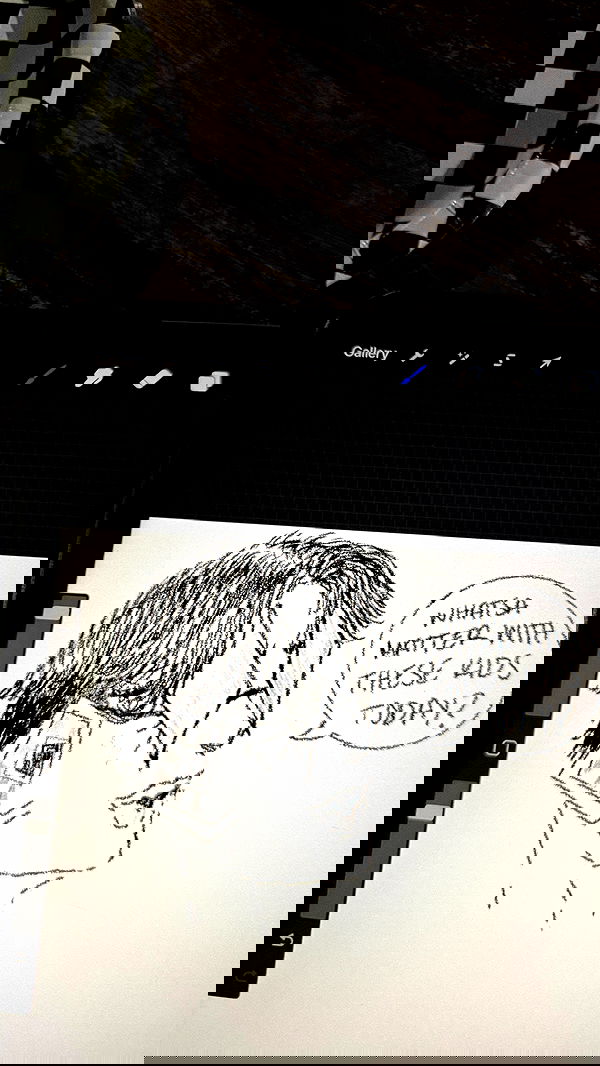 Gallery
WHATSA
MATTER WITH
THESE KIDS
TODAY?